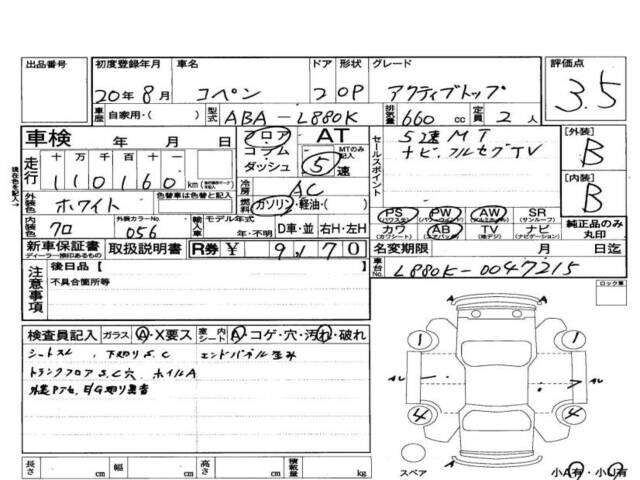 出品番号 初度登録年月 車名 ドア 形状 グレード 評価点
20年8月 コペン 2 OP アクティブトップ 3.5
車歴 自家用・( ) 型式 ABA-L880K 排気量 660 cc 定員 2人
車検 年 月 日 フロア AT
コラム MTのみ記入
ダッシュ 5速
セールスポイント 5速MT
ナビ.フルセグTV
[外装] B
[内装] B
現在色を記入→
走行 十万千百十一
110160 km
冷房 AC
外装色 ホワイト 色替車は色替と記入 燃料 ガソリン・軽油・( )
内装色 クロ 外装カラーNo. 056 輸入車 モデル年式 年・不明 D車・並 右H・左H
PS (パワステ) PW (パワーウィンド) AW (アルミホイル) SR (サンルーフ)
カワ (カワシート) AB (エアバッグ) TV (地デジ) ナビ (ナビゲーション)
純正品のみ丸印
新車保証書 ディーラー捺印あるもの 取扱説明書 R券 ¥ 9,170
名変期限 月 日迄
車台No. L880K-0047215
注意事項 後日品【 】
不具合箇所等
ロック車
検査員記入 ガラス A・X要ス 室内 シート A・コゲ・穴・汚れ・破れ
シートスレ、下廻りS、C エンドパネル歪み
トランクフロアS.C穴 ホイルA
1 1
4 4
スペア 小A有・小U有
長さ cm 幅 cm 高さ cm 積載量 kg